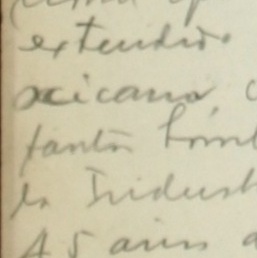 extendido
xicana, c
tanto homb
la Indust
45 años d